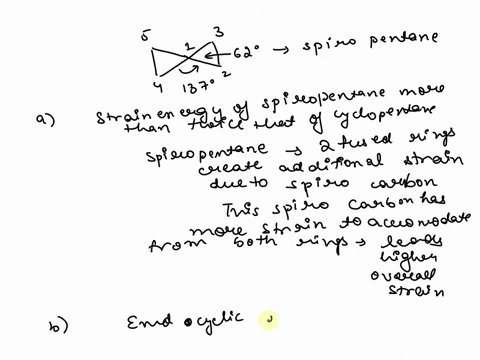 5 3
1 62° → spiro pentane
4 137° 2
a) strain energy of spiropentane more
than twice that of cyclopentane
spiropentane → 2 fused rings
create additional strain
due to spiro carbon
This spiro carbon has
more strain to accomodate
from both rings → leads
higher
overall
strain
b) Endocyclic